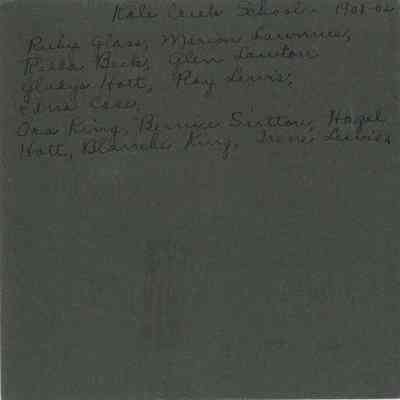 School - 1901-02
Ruby Glass, Merion
Reba Beck, Glen Lawton
Gladys Hott, Roy Lewis,
Edna Case,
Ora King, Bernice Sutton, Hazel
Hott, Blanche King, Irene Lewis,